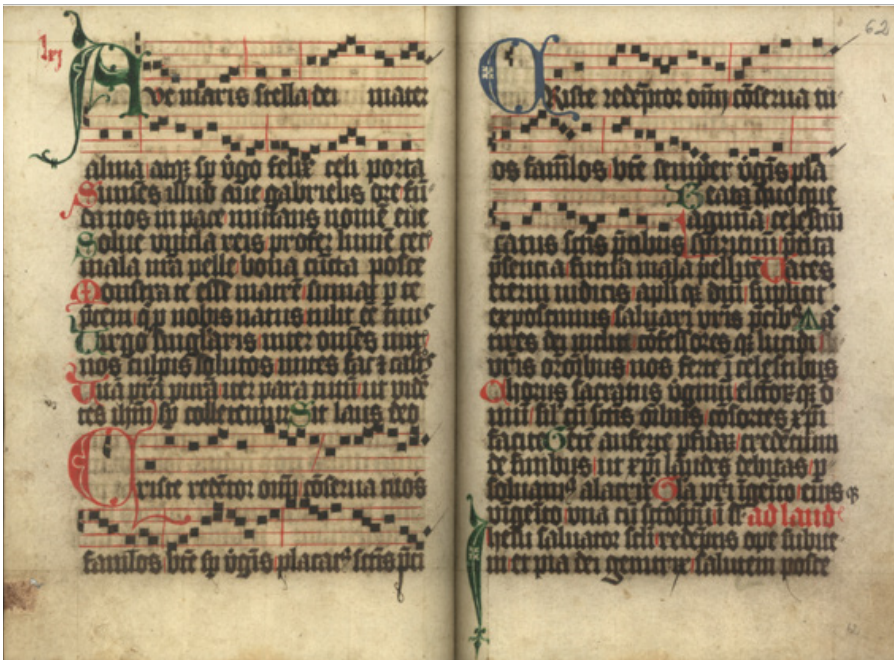 lxj
Ave maris stella dei mater
alma atqȝ sp v̾go felix celi porta
Sumēs illud aue gabrielis ore fū
da nos in pace mutans nomē eue
Solue vincla reis profer lumē cec̾
mala nr̄a pelle bona cūcta posce
Monstra te esse matrē sumat p te
p̄cem q̇ p nobis natus tulit eē tuus
Uirgo singlaris inter om̄es mit̾
nos culpis solutos mites fac ⁊ casto
Uitā p̄sta purā iter para tutum ut vidē
tes ihm̄ sp colletemur Sit laus deo
Criste redēptor om̄ cōserua tuos
famlos bt̄e sp v̾gīs placatꝰ sctīs p̄ci
62
Criste redēptor om̄ cōserua tu
os famlos bt̄e semper v̾gīs pla
Beata quoqȝ
agmina celestiū
catus sctīs p̄cibus Spirituū p̄rita
p̄sencia futura mala pellite Uates
eterni iudicis apli qȝ dn̄i supplicit̾
exposcimus saluari vr̄is p̄cibȝ Ma
tires dei incliti cōfessores qȝ lucidi
vr̄is or̄oibus nos ferte ī celestibus
Chorus sacratus v̾ginū electorqȝ o
mīū sil cū sctīs oībus cōsortes xp̄i
facite Gētē auferte p̄fidā credēcium
de finibus ut xp̄i laudes debitas p
soluamꝰ alacrit̾ Gl̄a p̄ri īgeīto eiusqȝ
vnigeīto vna cū sctō spū ad laud
Ihesu saluator scl̄i redēptis ope subue
ni et pia dei genitrix salutem posce